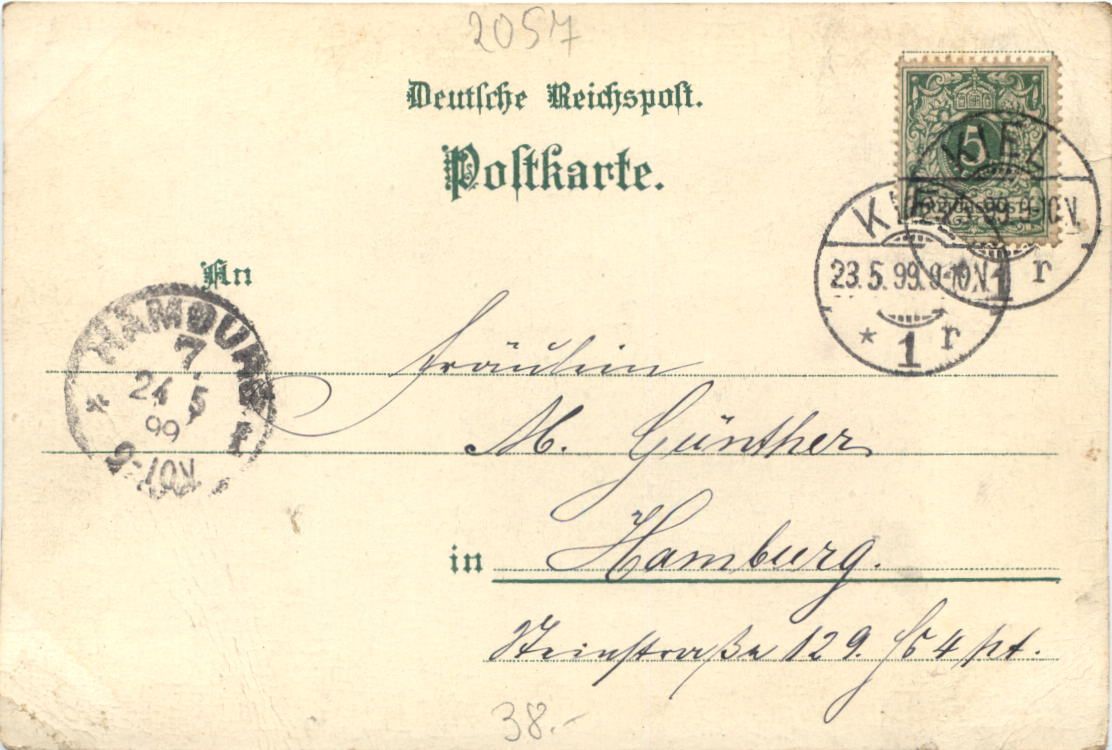 2057
Deutsche Reichspost.
Postkarte.
5
REICHSPOST
KIEL
99.9-10N.
1 r
KIEL
23.5.99.9-10N.
* 1 r
An
HAMBURG
7.
24 5
99
* 1
Fräulein
M. Günther
in Hamburg.
Steinstraße 129. Hs 4 pt.
38.-